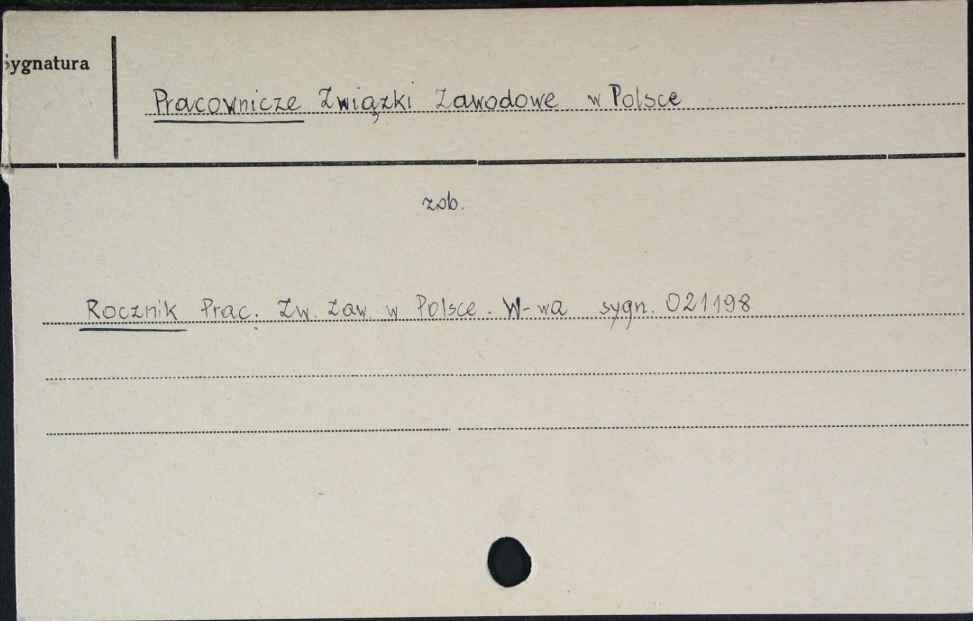 Sygnatura
Pracownicze Związki Zawodowe w Polsce
zob.
Rocznik Prac. Zw. Zaw w Polsce. W-wa sygn. 021198